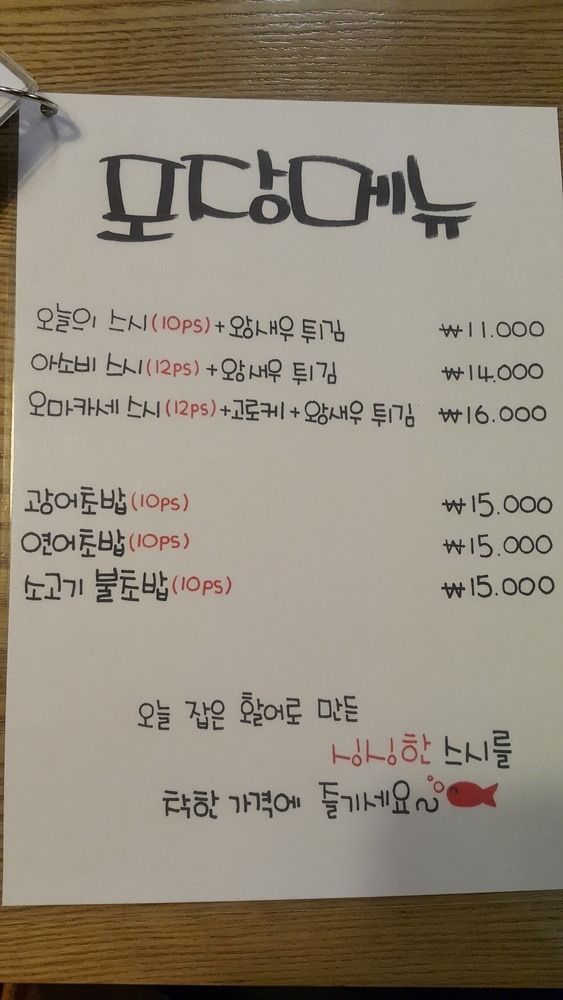 모당메뉴
오늘의 스시(10ps)+왕새우 튀김 ₩11.000
아소비 스시(12ps)+왕새우 튀김 ₩14.000
오마카세 스시(12ps)+고로케+왕새우 튀김 ₩16.000
광어초밥(10ps) ₩15.000
연어초밥(10ps) ₩15.000
소고기 불초밥(10ps) ₩15.000
오늘 잡은 활어로 만든
싱싱한 스시를
착한 가격에 즐기세요~